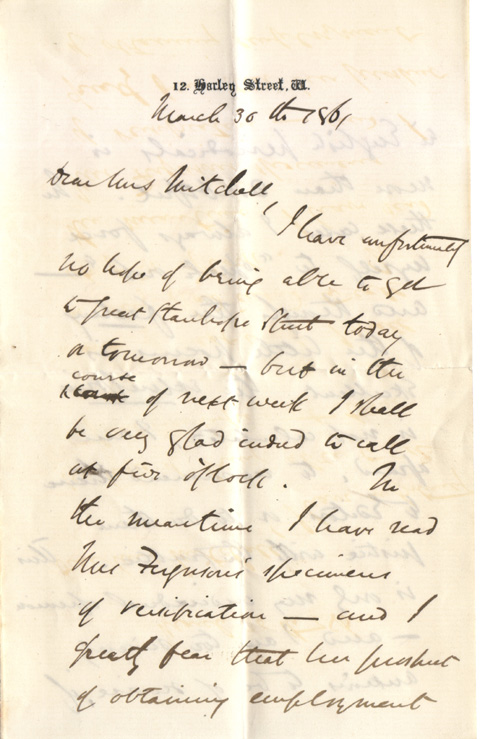 12. Harley Street, W.
March 30th 1861
Dear Mrs Mitchell,
I have unfortunately
no hope of being able to get
to Great Stanhope Street today
or tomorrow — but in the
course
of next week I shall
be very glad indeed to call
at five o'clock. In
the meantime I have read
Mrs Ferguson's specimens
of versification — and I
greatly fear that her prospect
of obtaining employment